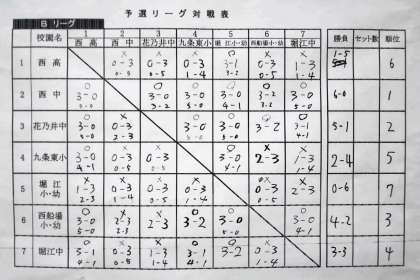 予選リーグ対戦表
Bリーグ
校園名 1 西高 2 西中 3 花乃井中 4 九条東小 5 堀江小・幼 6 西船場小・幼 7 堀江中 勝負 セット数 順位
1 西高 × 0-3 0-5 × 0-3 0-5 × 0-3 1-4 ○ 3-1 × 0-3 0-5 × 1-3 1-4 1-5 6
2 西中 ○ 3-0 5-0 ○ 3-0 3-2 ○ 3-0 5-0 ○ 3-0 4-1 ○ 3-2 ○ 3-0 5-0 6-0 1
3 花乃井中 ○ 3-0 5-0 × 0-3 2-3 ○ 3-0 5-0 ○ 3-0 5-0 ○ 3-2 ○ 3-1 4-1 5-1 2
4 九条東小 ○ 3-0 4-1 × 0-3 0-5 × 0-3 0-5 ○ 3-0 4-1 × 2-3 × 1-3 1-4 2-4 5
5 堀江小・幼 × 1-3 2-3 × 0-3 1-4 × 0-3 0-5 × 0-3 1-4 × 0-3 0-5 × 2-3 0-6 7
6 西船場小・幼 ○ 3-0 5-0 × 2-3 2-3 × 2-3 ○ 3-2 ○ 3-0 5-0 ○ 3-0 4-1 4-2 3
7 堀江中 ○ 3-1 4-1 × 0-3 0-5 × 1-3 1-4 ○ 3-1 4-1 ○ 3-2 × 0-3 1-4 3-3 4